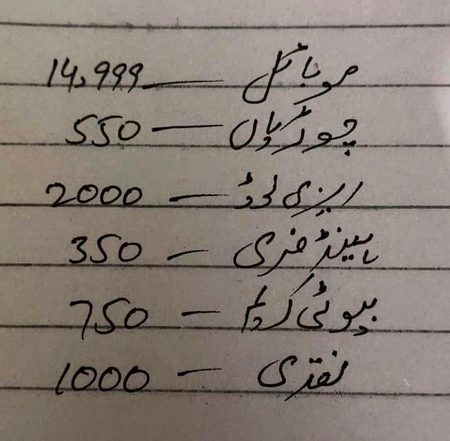 موبائل — 14,999
چوڑیاں — 550
ایزی لوڈ — 2000
ہینڈ فری — 350
بیوٹی کریم — 750
نقدی — 1000